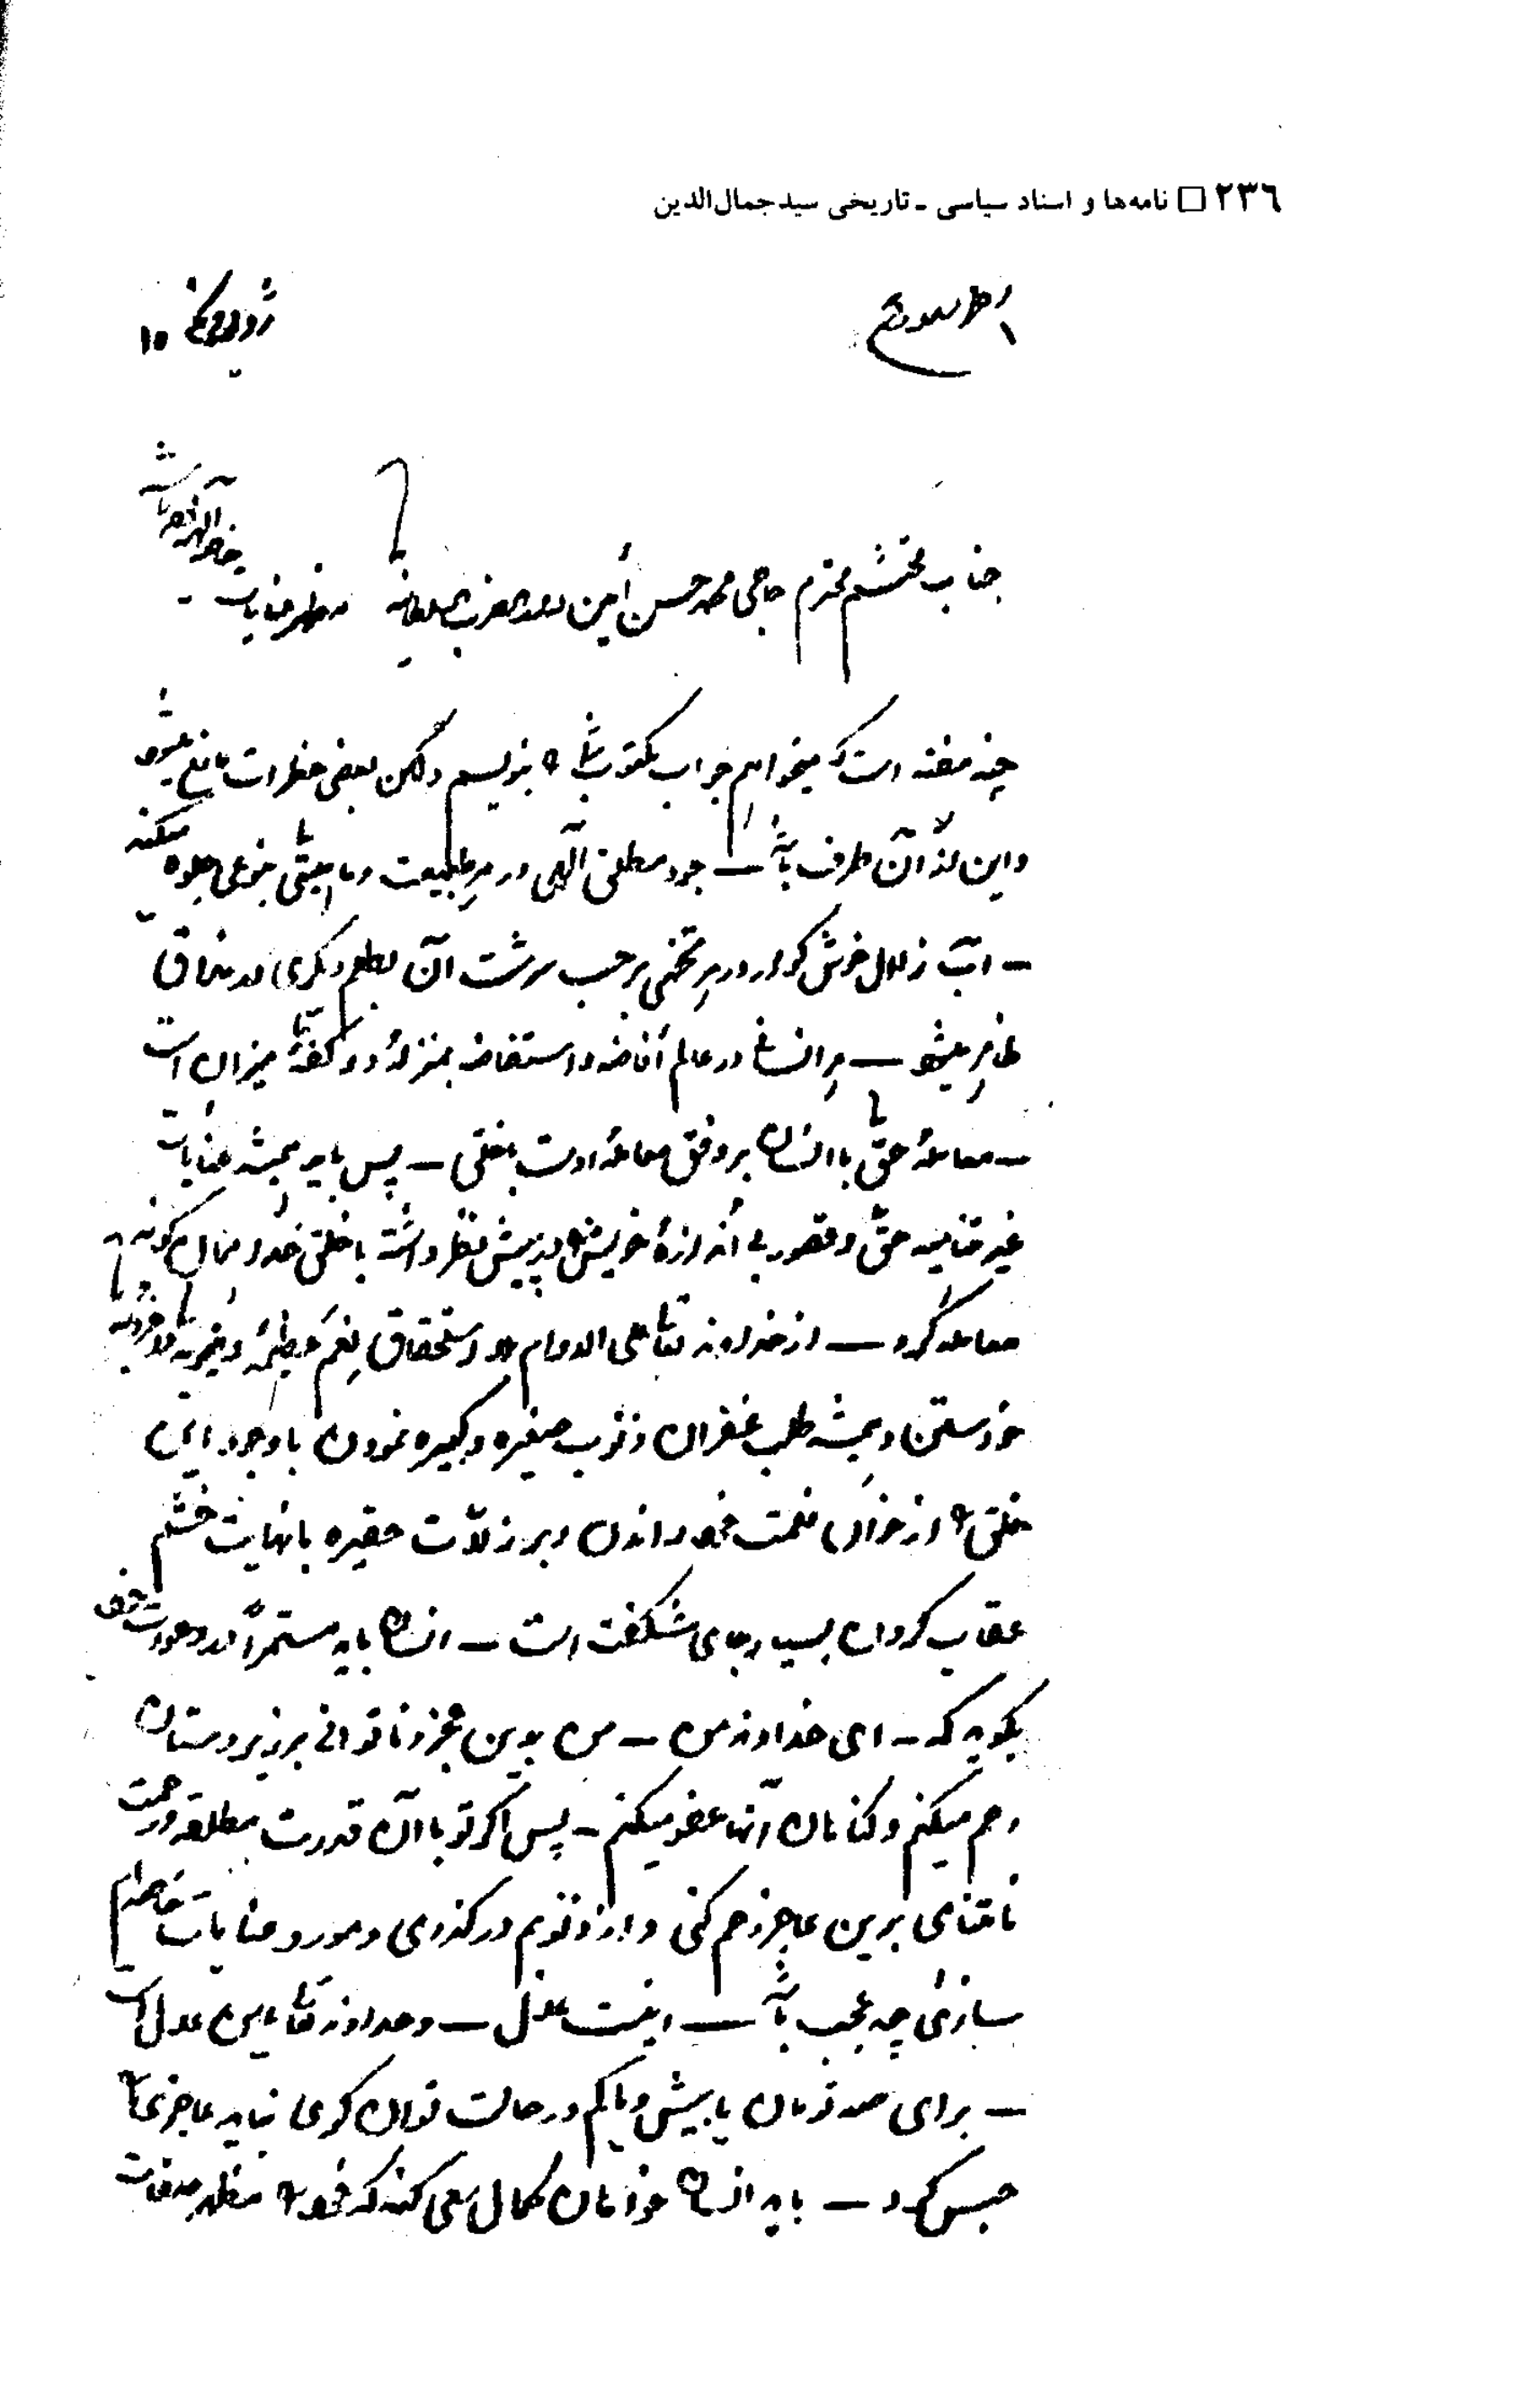 ۲۳٦ □ نامه‌ها و اسناد سیاسی - تاریخی سید جمال‌الدین
۱۵
جناب محتشم محترم حاجی محمد حسن أمین مظهر عنایات خاصه الهیه باشند
چند هفته است که میخواهم جواب مکتوب شما را بنویسم ولکن بعضی خطرات مانع میشود
و این از آن طرف باشد — جود مطلق آلهی در هر طبیعت و ماهیتی بنوعی جلوه میکند
– آب زلال خوش گوار در هر تخمی بر حسب سرشت آن بطعم دیگری در مذاق
ظاهر میشود — هر انسانی در عالم أفاضه و استفاضه بمنزلهٔ دو کفهٔ میزان است
– معاملهٔ حق با انسان بر وفق معاملهٔ اوست با خلق – پس باید همیشه عنایات
غیر متناهیه حق و قصور بی أندازهٔ خویش را در پیش نظر داشته با خلق خدا همان گونه
معامله کرد — از خداوند تعالی علی الدوام بلا استحقاق نعم عظیمه و
خواستن و همیشه طلب غفران ذنوب صغیره و کبیره نمودن با وجود این
خلق را از خوان نعمت خود راندن و بر زلات حقیره با نهایت خشم
عقاب کردن بسیار جای شگفت است – انسان باید مستمرّاً در دعوات خود
بگوید که – ای خداوند من – من بدین عجز و ناتوانی بر زیردستان
رحم میکنم و گناهان آنها عفو میکنم – پس اگر تو با آن قدرت مطلقه و رحمت
نامتناهی برین عاجز رحم کنی و از ذنوبم درگذری و مورد عنایات خاصه‌ام
سازی چه عجب باشد — اینست عدل — و خداوند تعالی عدل است
– برای صد تومان یا بیش و یا کم در حالت توان گری نباید عاجزی را
حبس کرد – باید انسان خدادان بکمال سعی کند که خود را مظهر صفات